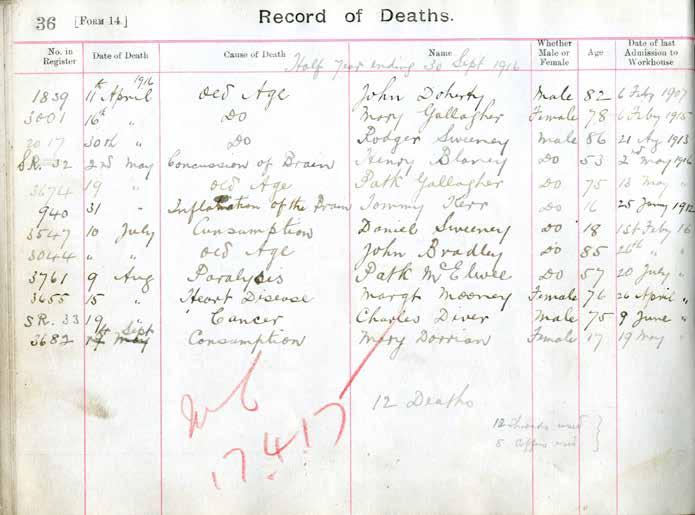 36 [FORM 14.] Record of Deaths.
No. in Register Date of Death Cause of Death Name Whether Male or Female Age Date of last Admission to Workhouse
Half year ending 30 Sept 1916
1916
1839 11th April old Age John Doherty Male 82 6 Feby 1907
3001 16th " Do Mary Gallagher Female 78 6 Feby 1915
2017 30th " Do Rodger Sweeney Male 86 21 Aug 1913
SR. 32 2nd May Concussion of Brain Henry Blaney Do 53 2nd May 1916
3674 19 " old Age Patk Gallagher Do 75 13 May "
940 31 " Inflamation of the Brain Tommy Kerr Do 16 25 Jany 1912
3547 10 July Consumption Daniel Sweeney Do 18 1st Feby 16
3044 " " old Age John Bradley Do 85 26th " "
3761 9 Aug Paralysis Patk McElwee Do 57 20 July "
3655 15 " Heart Disease Margt Mooney Female 76 26 April "
SR. 33 19 " Cancer Charles Diver Male 75 9 June "
3682 Sept May Consumption Mary Dorrian Female 17 19 May "
12 Deaths
12 Shrouds used
8 Coffins used
17.4.17